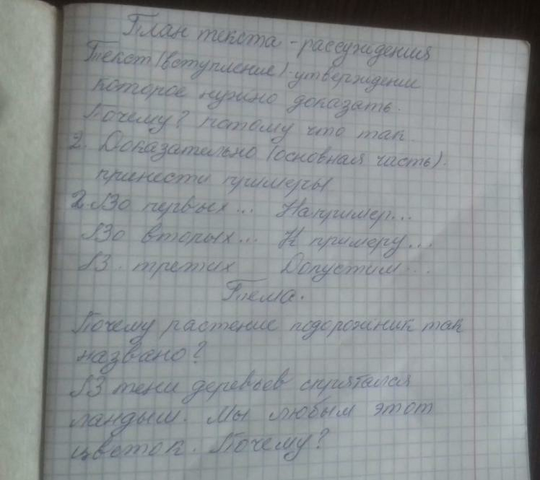 План текста - рассуждения
Текст (вступление)-утверждение
которое нужно доказать.
Почему? потому что так.
2. Доказательно (основная часть).
принести примеры
2. Во первых... Например...
Во вторых... К примеру...
В третих Допустим...
Тема.
Почему растение подорожник так
названо?
В тени деревьев спрятался
ландыш. Мы любым этот
цветок. Почему?